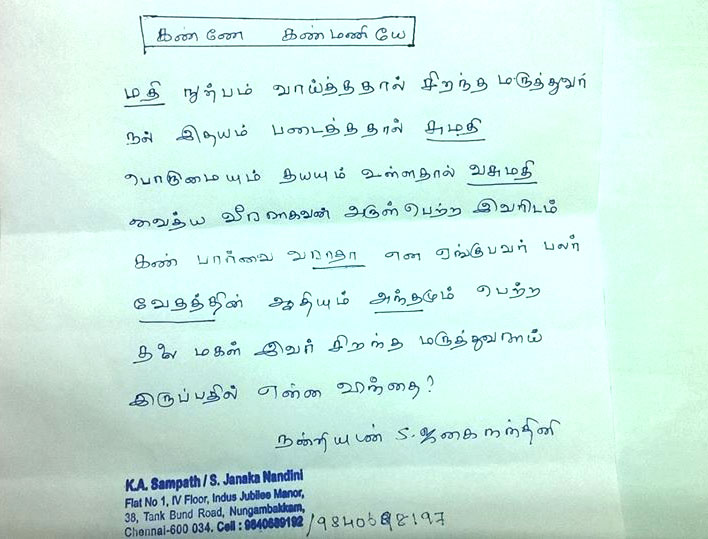 கண்ணே கண்மணியே
மதி நுட்பம் வாய்த்ததால் சிறந்த மருத்துவர்
நல் இதயம் படைத்ததால் சுமதி
பொறுமையும் தயையும் உள்ளதால் வசுமதி
வைத்ய வீரராகவன் அருள் பெற்ற இவரிடம்
கண் பார்வை வராதா என ஏங்குபவர் பலர்
வேதத்தின் ஆதியும் அந்தமும் பெற்ற
தலை மகள் இவர் சிறந்த மருத்துவராய்
இருப்பதில் என்ன விந்தை?
நன்றியுடன் S. ஜனகநந்தினி
K.A. Sampath / S. Janaka Nandini
Flat No 1, IV Floor, Indus Jubilee Manor,
38, Tank Bund Road, Nungambakkam,
Chennai-600 034. Cell : 9840689192 /9840698197